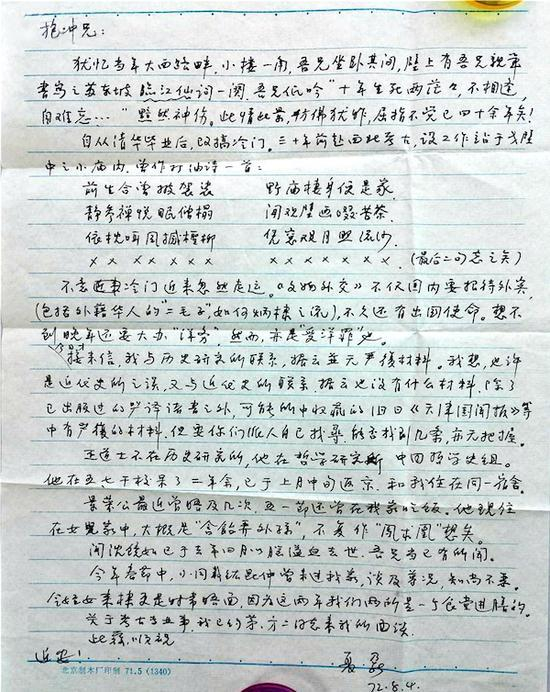 抱冲兄：
犹忆当年大西路畔，小楼一角，吾兄坐卧其间，壁上有吾兄亲笔
书写之苏东坡临江仙词一阕，吾兄低吟“十年生死两茫々，不相逢，
自难忘…”黯然神伤。此情此景，彷彿犹昨，屈指不觉已四十余年矣！
自从清华毕业后，改搞冷门。三十年前赴西北考古，设工作站于戈壁
中之小庙内，曾作打油诗一首：
前生合曾披袈裟 野庙栖身便是家
静参禅悦眠僧榻 闲观壁画啜苦茶
依枕听风撼柽柳 凭窗观月照流沙
× × × × × × × × × × × × × × （最后二句忘之矣）
不意近来冷门近来忽然走运。《文物外交》不仅国内要招待外宾，
（包括外籍华人的“二毛子”如何炳棣之流），不久还有出国使命。想不
到晚年还要大办“洋务”，然而，亦是“受洋罪”也。
接来信，我与历史研究所联系，据云并无严复材料。我想，也许
是近代史所之误，又与近代史所联系，据云也没有什么材料，除了
已出版过的严译诸书之外，可能所中收藏的旧日《天津国闻报》等
中有严复的材料，但要你们派人自己找寻，能否找到几条，亦无把握。
王道士不在历史研究所，他在哲学研究所中国哲学史组。
他在五七干校呆了二年余，已于上月中旬返京，和我住在同一宿舍。
景荣公最近曾晤及几次，五一节还曾在我家吃饭。他现住
在女儿家中，大概是“含饴弄外孙”，不复作“凤求凰”想矣。
闻沈鍊如已于去年四月以脑溢血去世，吾兄当已有所闻。
今年春节中，小同乡 曾来过找我，谈及尊况，知尚不恶。
令侄女 更是时常晤面，因为这两年我们两所是一个食堂进膳的。
关于考古专业事，我已约 方二同志来我所面谈。
此覆，顺祝
近安！
夏鼐
72.8.4.
北京制本厂印制 71.5 (1340)